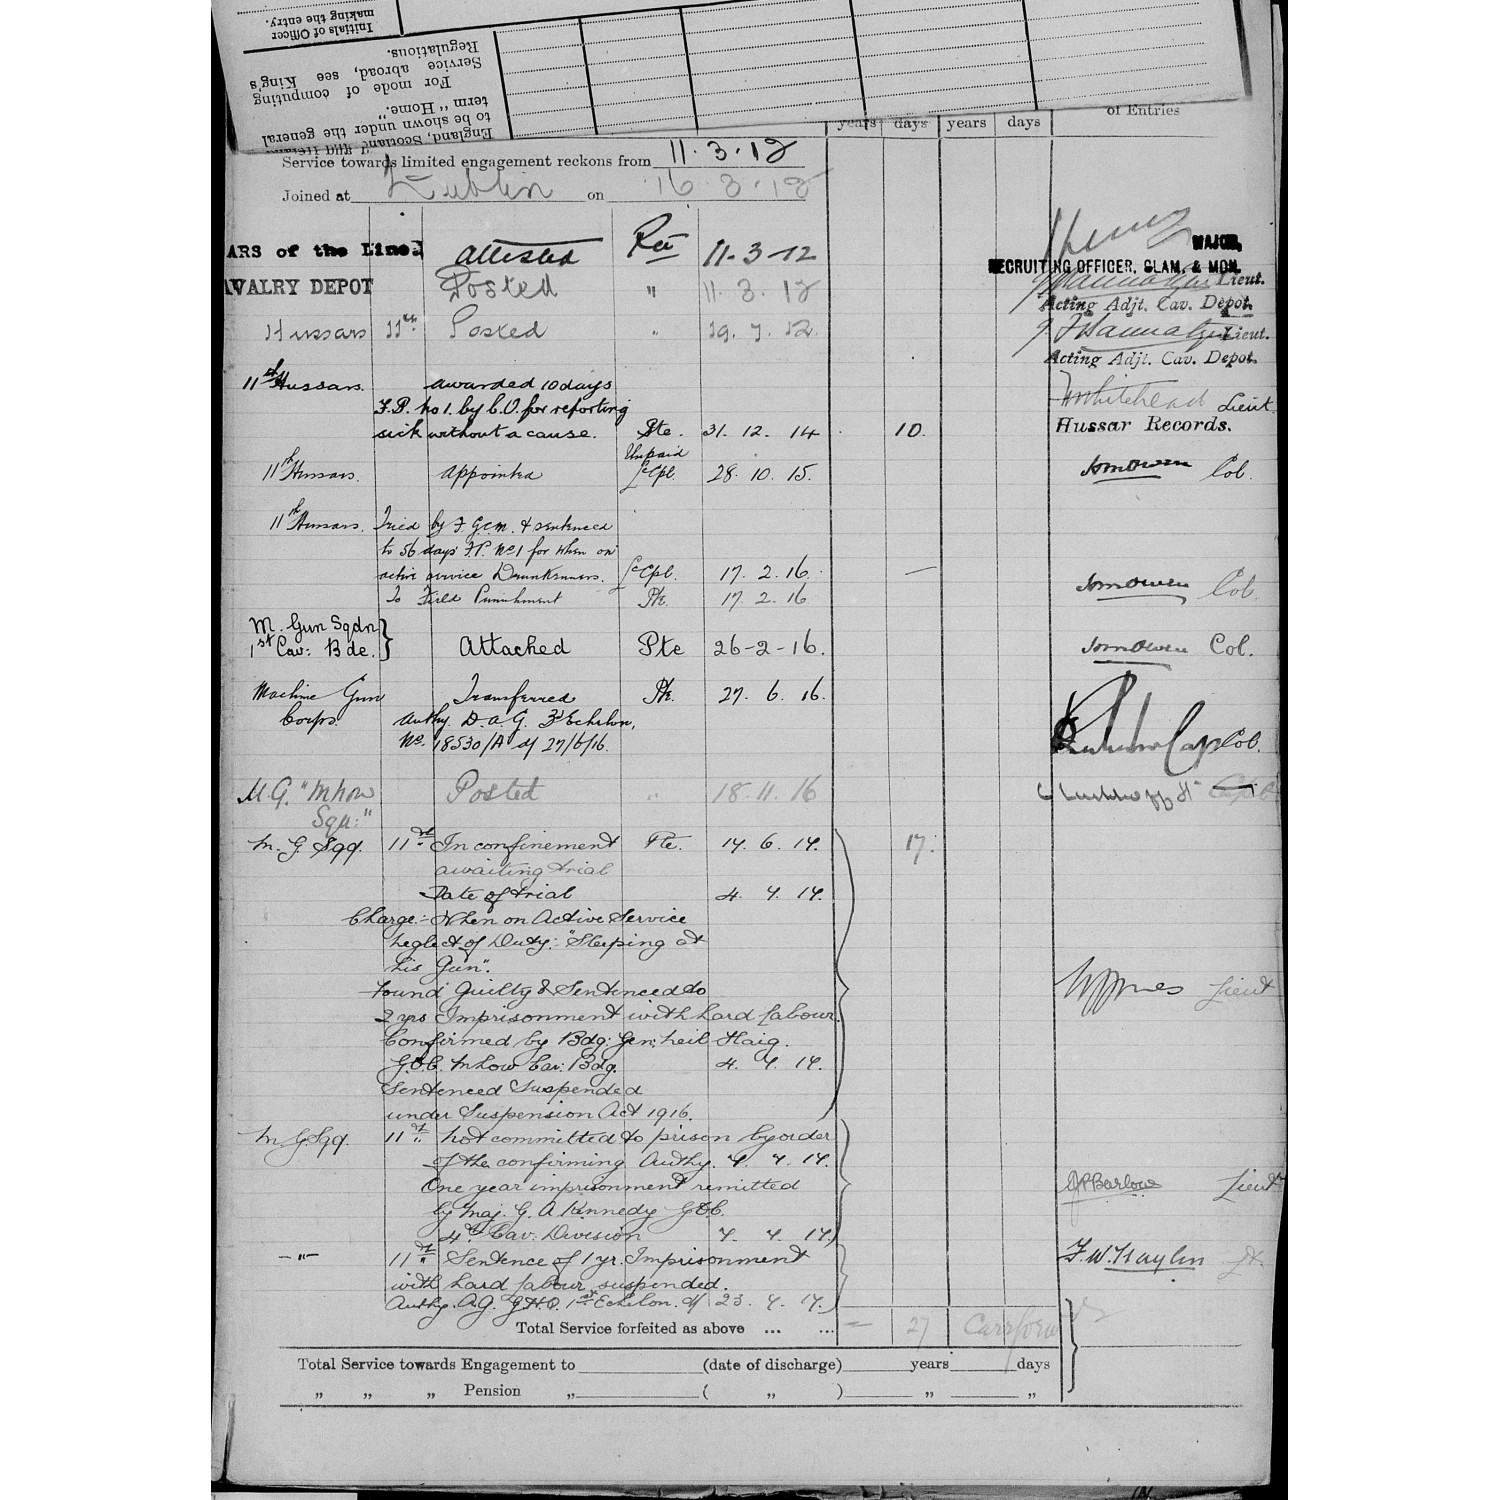 Initials of Officer
making the entry.
England, Scotland and Ireland
to be shown under the general
term "Home."
For mode of computing
Service abroad, see King's
Regulations.
years days years days of Entries
Service towards limited engagement reckons from 11.3.12
Joined at Dublin on 16.3.12
ARS of the Line. Attested Rct 11-3-12 MAJOR,
RECRUITING OFFICER, GLAM. & MON.
AVALRY DEPOT Posted " 11.3.12 Lieut.
Acting Adjt. Cav. Depot.
Hussars 11th Posted " 19.7.12 Lieut.
Acting Adjt. Cav. Depot.
11th Hussars. awarded 10 days
F.P. No 1. by C.O. for reporting Whitehead Lieut.
sick without a cause. Pte. 31.12.14 10. Hussar Records.
Unpaid
11th Hussars. Appointed L/Cpl. 28.10.15. Col.
11th Hussars. Tried by F.G.C.M. & sentenced
to 56 days F.P. No 1 for when on
active service Drunkenness. L/Cpl. 17.2.16. — Col.
To Field Punishment Pte. 17.2.16
M. Gun Sqdn
1st Cav: Bde. } Attached Pte 26-2-16. Col.
Machine Gun Transferred Pte. 27.6.16.
Corps. Authy. D.A.G. 3rd Echelon,
No. 18530/A d/ 27/6/16. Col.
M.G. "Mhow Posted " 18.11.16
Sqn:"
M.G. Sqd. 11th In confinement Pte. 17.6.17. 17.
awaiting trial
Date of trial 4.7.17.
Charge:- When on Active Service
Neglect of Duty: "Sleeping at
his Gun".
Found Guilty & Sentenced to Lieut
2 yrs Imprisonment with hard labour.
Confirmed by Bdg: Gen: Neil Haig.
G.O.C. Mhow Cav: Bdg. 4.7.17.
Sentenced Suspended
under Suspension Act 1916.
M.G. Sqd. 11th Not committed to prison by order
of the confirming Authy. 7.7.17.
One year imprisonment remitted Barlow Lieut
by Maj. G. A Kennedy G.O.C.
4th Cav: Division 7.7.17.
—"— 11th Sentence of 1 yr. Imprisonment F.W. Haylin Lt.
with hard labour suspended.
Authy. A.G. G.H.Q. 1st Echelon. d/ 23.7.17.
Total Service forfeited as above ... ... — 27 Carr forwd
Total Service towards Engagement to (date of discharge) years days
„ „ „ Pension „ ( „ ) „ „